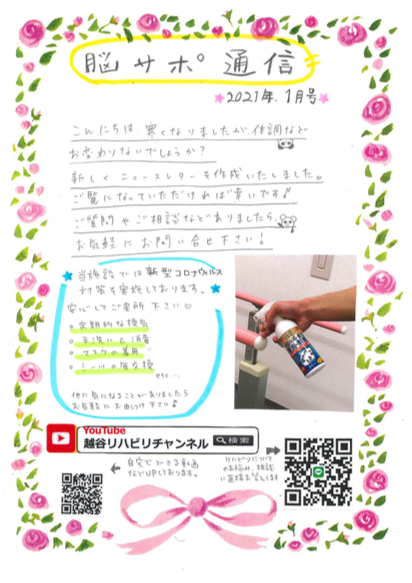 脳サポ通信
★2021年.1月号★
こんにちは 寒くなりましたが、体調など
お変わりないでしょうか？
新しくニュースレターを作成いたしました。
ご覧になっていただければ幸いです♪
ご質問やご相談などありましたら、
お気軽にお問い合せ下さい！
★当施設では新型コロナウィルス
対策を実施しております。★
安心してご来所下さい♡
○定期的な換気
○手洗い・消毒
○マスクの着用
etc…
他に気になることがありましたら
お気軽にお申し付け下さい♪
YouTube
越谷リハビリチャンネル 検索
自宅でできる動画
などUPしております。
リハビリについて
のお悩み、相談
に直接お答えします
LINE